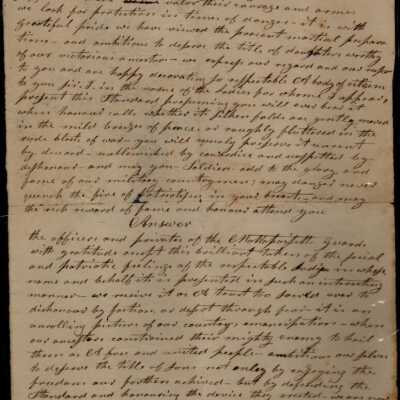 valor their courage and arms
we look for protection in times of danger - it is with
grateful pride we have viewed the present martial prepara
tions - and ambitious to deserve the title of daughters worthy
of our victorious ancestors - we express our regard and our respect
to you and are happy decorating so respectable A body of citizens
to you first. in the name of the ladies for whom I appear,
present this Standard presuming you will ever bear it
where honour calls whether it silken folds are gently moved
in the mild breeze of peace, or roughly fluttered in the
rude blasts of war - you will surely preserve it unrent
by discord - untarnished by cowardice and unspotted by
dishonour - and may you add to the glory and
fame of our military countrymen; may danger never
quench the fire of Patriotism in your breast - and may
the rich reward of fame and honour attend you
Answer
the officers and privates of the guards
with gratitude accept this brilliant token of the social
and patriotic feelings of the respectable ladies in whose
name and behalf it is presented in such an interesting
manner - we receive it as A trust too sacred ever to
dishonour by or desert through fear it is an
portion of our country's emancipation - when
our ancestors constrained their mighty enemy to hail
them as A free and united people - ambitious ourselves
to deserve the title of sons not only by enjoying the
freedom our fathers achieved - but by defending the
Standard and honouring the device they erected